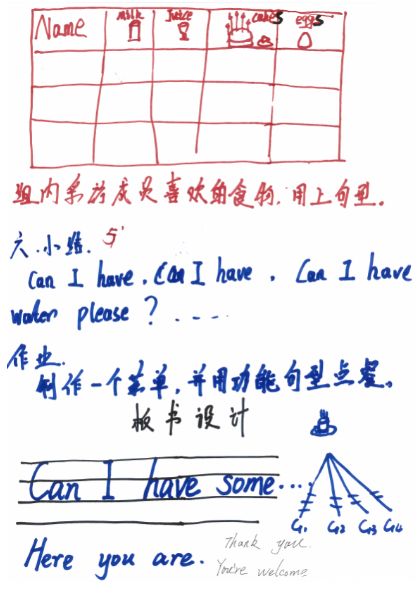 Name milk Juice cakes eggs
组内采访成员喜欢的食物,用上句型。
六.小结. 5'
Can I have, Can I have, Can I have
water please? ....
作业.
制作一个菜单,并用功能句型点餐。
板书设计
Can I have some...
G1 G2 G3 G4
Here you are.
Thank you.
You're welcome